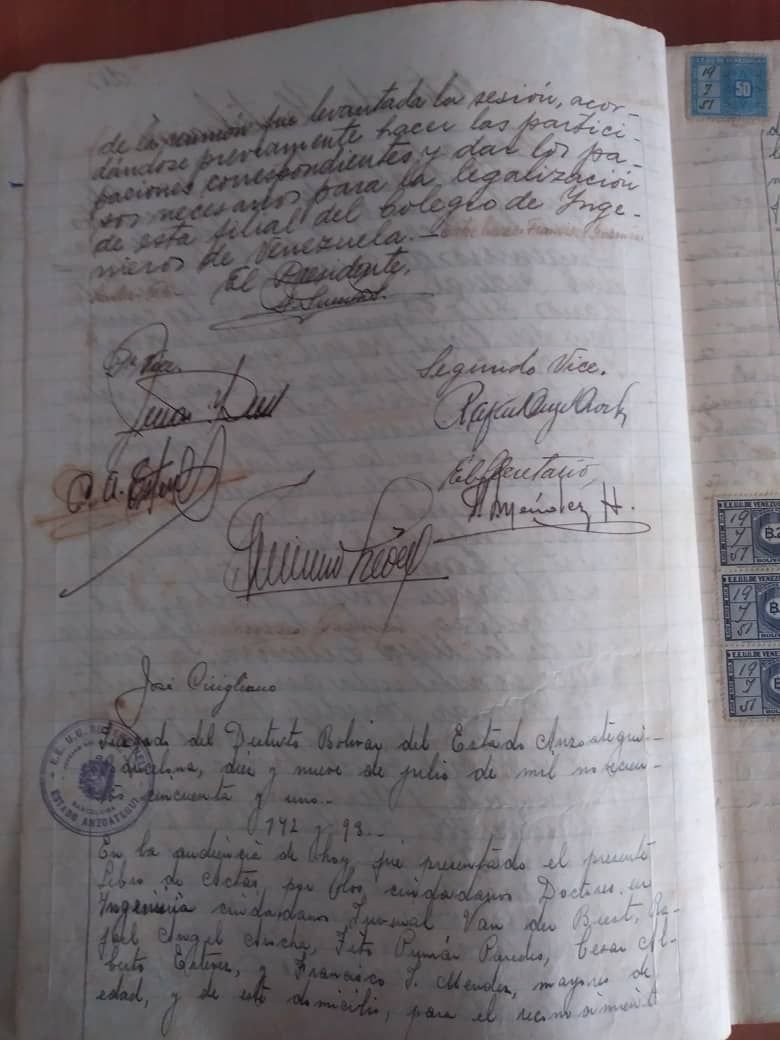 de la reunión fue levantada la sesión, acor-
dándose previamente hacer las partici-
paciones correspondientes y dar los pa-
sos necesarios para la legalización
de esta filial del Colegio de Inge-
nieros de Venezuela.—
El Presidente,
Segundo Vice.
Rafael Angel
El Secretario,
Méndez H.
José Cirigliano
Juzgado del Distrito Bolívar del Estado Anzoátegui.—
Barcelona, diez y nueve de julio de mil novecien-
tos cincuenta y uno.—
142 y 93.—
En la audiencia de hoy, fué presentado el presente
Libro de Actas, por los ciudadanos Doctores en
Ingeniería ciudadanos Juvenal Van der Biest, Ra-
fael Angel Arocha, Tito Pumar Paredes, Cesar Al-
berto Esteves, y Francisco J. Mendez, mayores de
edad, y de este domicilio, para el reconocimient
ESTADO ANZOATEGUI
BARCELONA
E.E.U.U. DE VENEZUELA
50
19
7
51
E.E.U.U. DE VENEZU
19
7
51
E.E.U.U. DE VENEZU
19
7
51
E.E.U.U. DE VENEZ
19
7
51